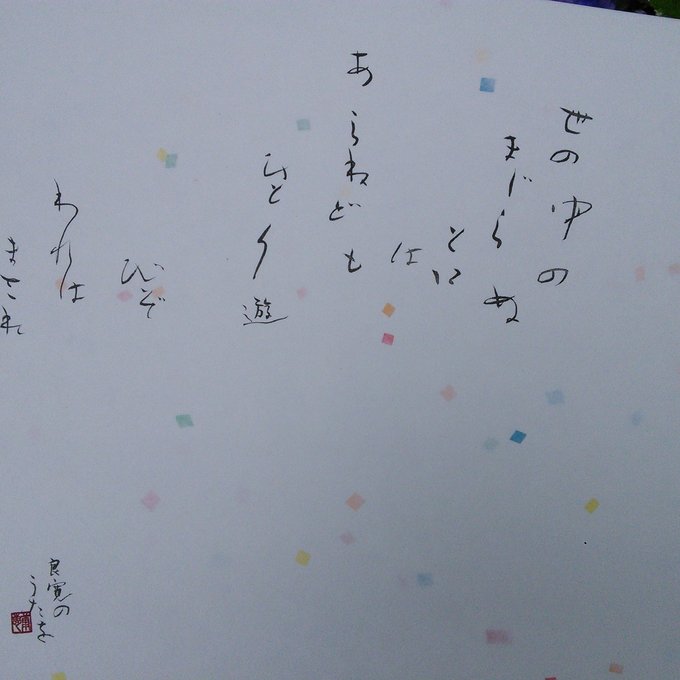 世の中の
まじらぬ
とに
は
あらねども
ひとり遊
びぞ
われは
まされ
良寛の
うたを